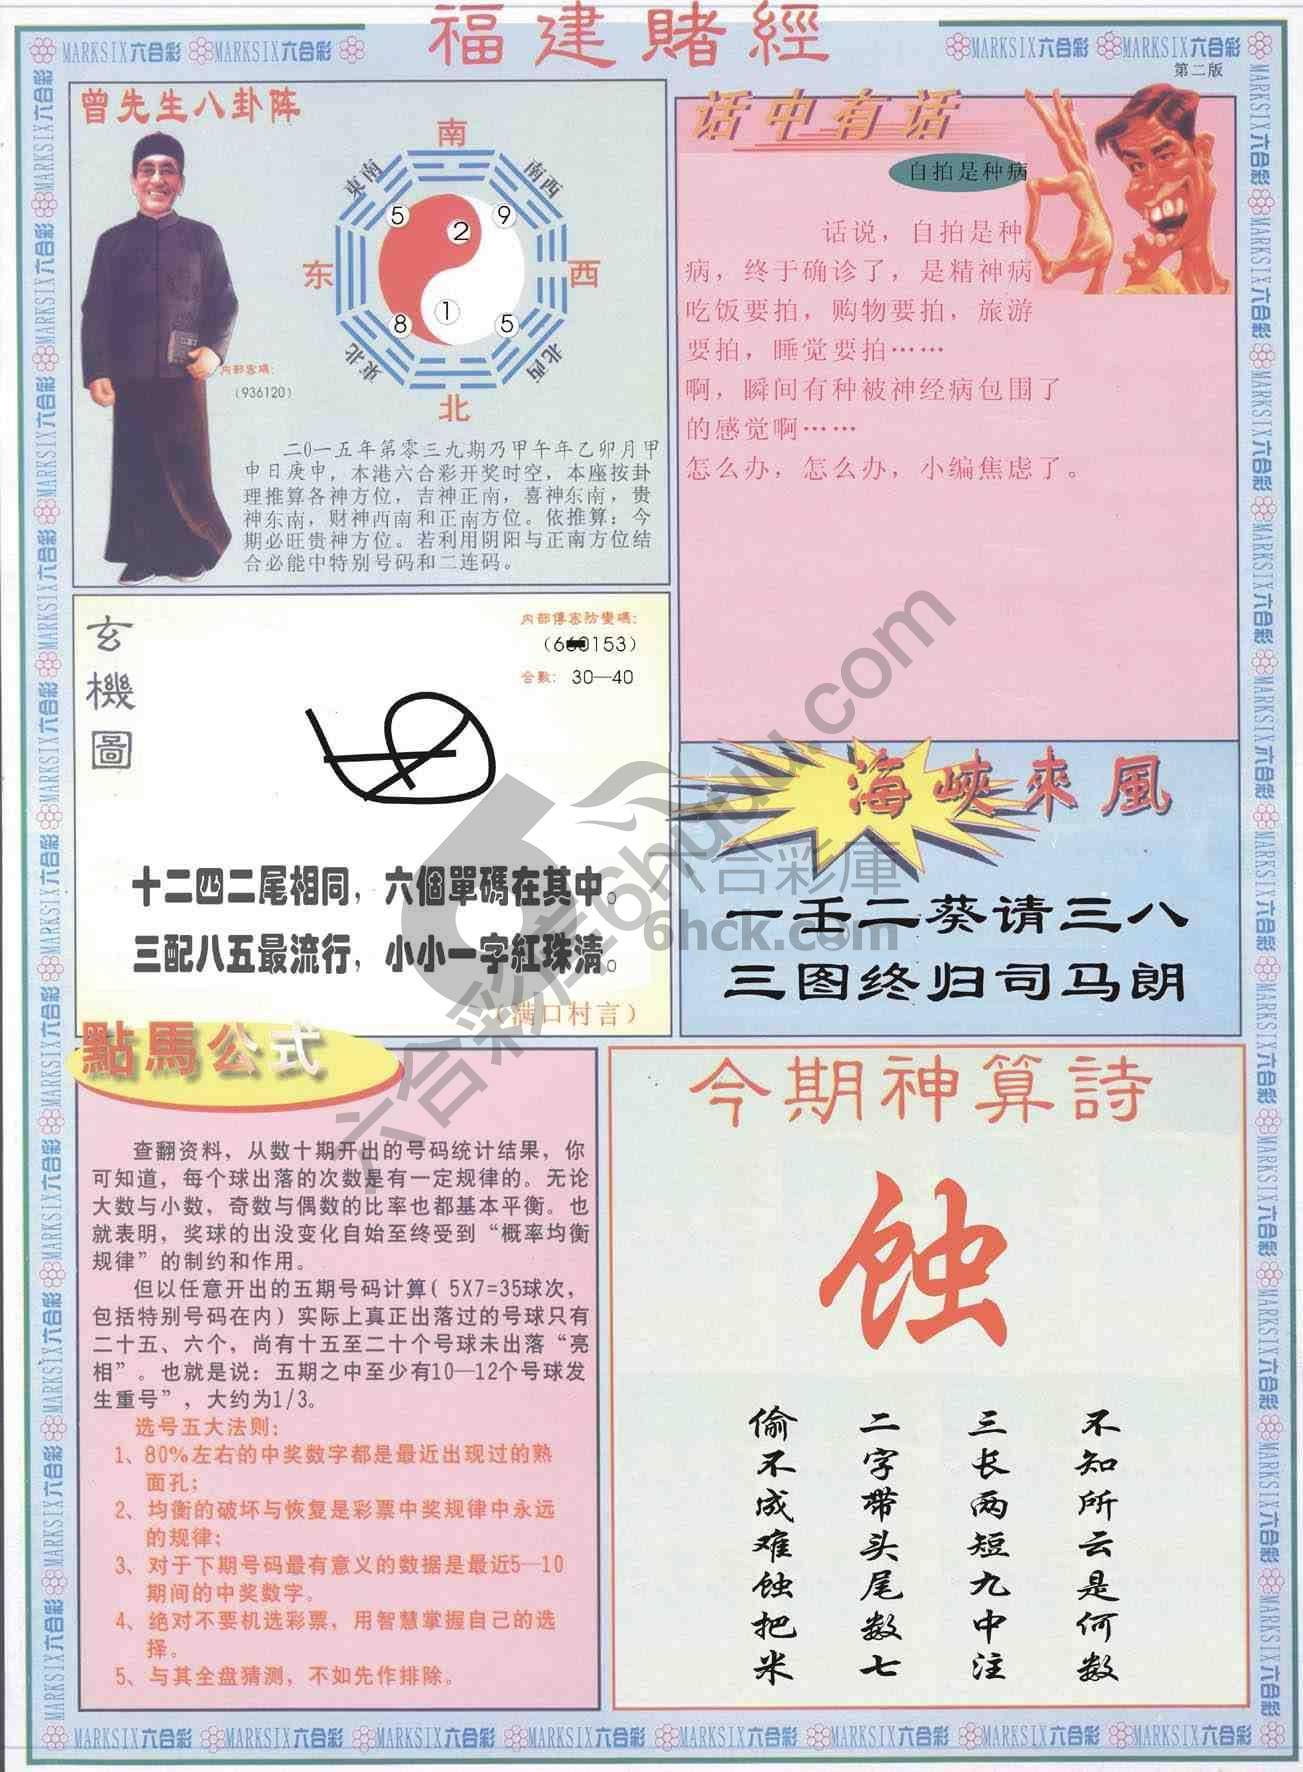 福建賭經
MARKSIX六合彩 MARKSIX六合彩
MARKSIX六合彩 MARKSIX六合彩
第二版
曾先生八卦阵
南
東南
南西
5
9
2
东
西
1
8
5
東北
北西
北
内部密碼:
(936120)
二0一五年第零三九期乃甲午年乙卯月甲
申日庚申，本港六合彩开奖时空，本座按卦
理推算各神方位，吉神正南，喜神东南，贵
神东南，财神西南和正南方位。依推算：今
期必旺贵神方位。若利用阴阳与正南方位结
合必能中特别号码和二连码。
话中有话
自拍是种病
话说，自拍是种
病，终于确诊了，是精神病
吃饭要拍，购物要拍，旅游
要拍，睡觉要拍……
啊，瞬间有种被神经病包围了
的感觉啊……
怎么办，怎么办，小编焦虑了。
玄機圖
内部傳密防變碼:
153)
合數: 30—40
十二四二尾相同，六個單碼在其中。
三配八五最流行，小小一字紅珠清。
（满口村言）
海峽來風
一壬二葵请三八
三图终归司马朗
六合彩庫
6hck.com
六合彩库6huuu.com
點馬公式
查翻资料，从数十期开出的号码统计结果，你
可知道，每个球出落的次数是有一定规律的。无论
大数与小数，奇数与偶数的比率也都基本平衡。也
就表明，奖球的出没变化自始至终受到“概率均衡
规律”的制约和作用。
但以任意开出的五期号码计算( 5X7=35球次，
包括特别号码在内）实际上真正出落过的号球只有
二十五、六个，尚有十五至二十个号球未出落“亮
相”。也就是说：五期之中至少有10—12个号球发
生重号”，大约为1/3。
选号五大法则:
1、80%左右的中奖数字都是最近出现过的熟
面孔;
2、均衡的破坏与恢复是彩票中奖规律中永远
的规律;
3、对于下期号码最有意义的数据是最近5—10
期间的中奖数字。
4、绝对不要机选彩票，用智慧掌握自己的选
择。
5、与其全盘猜测，不如先作排除。
今期神算詩
蚀
不知所云是何数
三长两短九中注
二字带头尾数七
偷不成难蚀把米
MARKSIX六合彩 MARKSIX六合彩 MARKSIX六合彩 MARKSIX六合彩 MARKSIX六合彩 MARKSIX六合彩 MARKSIX六合彩 MARKSIX六合彩